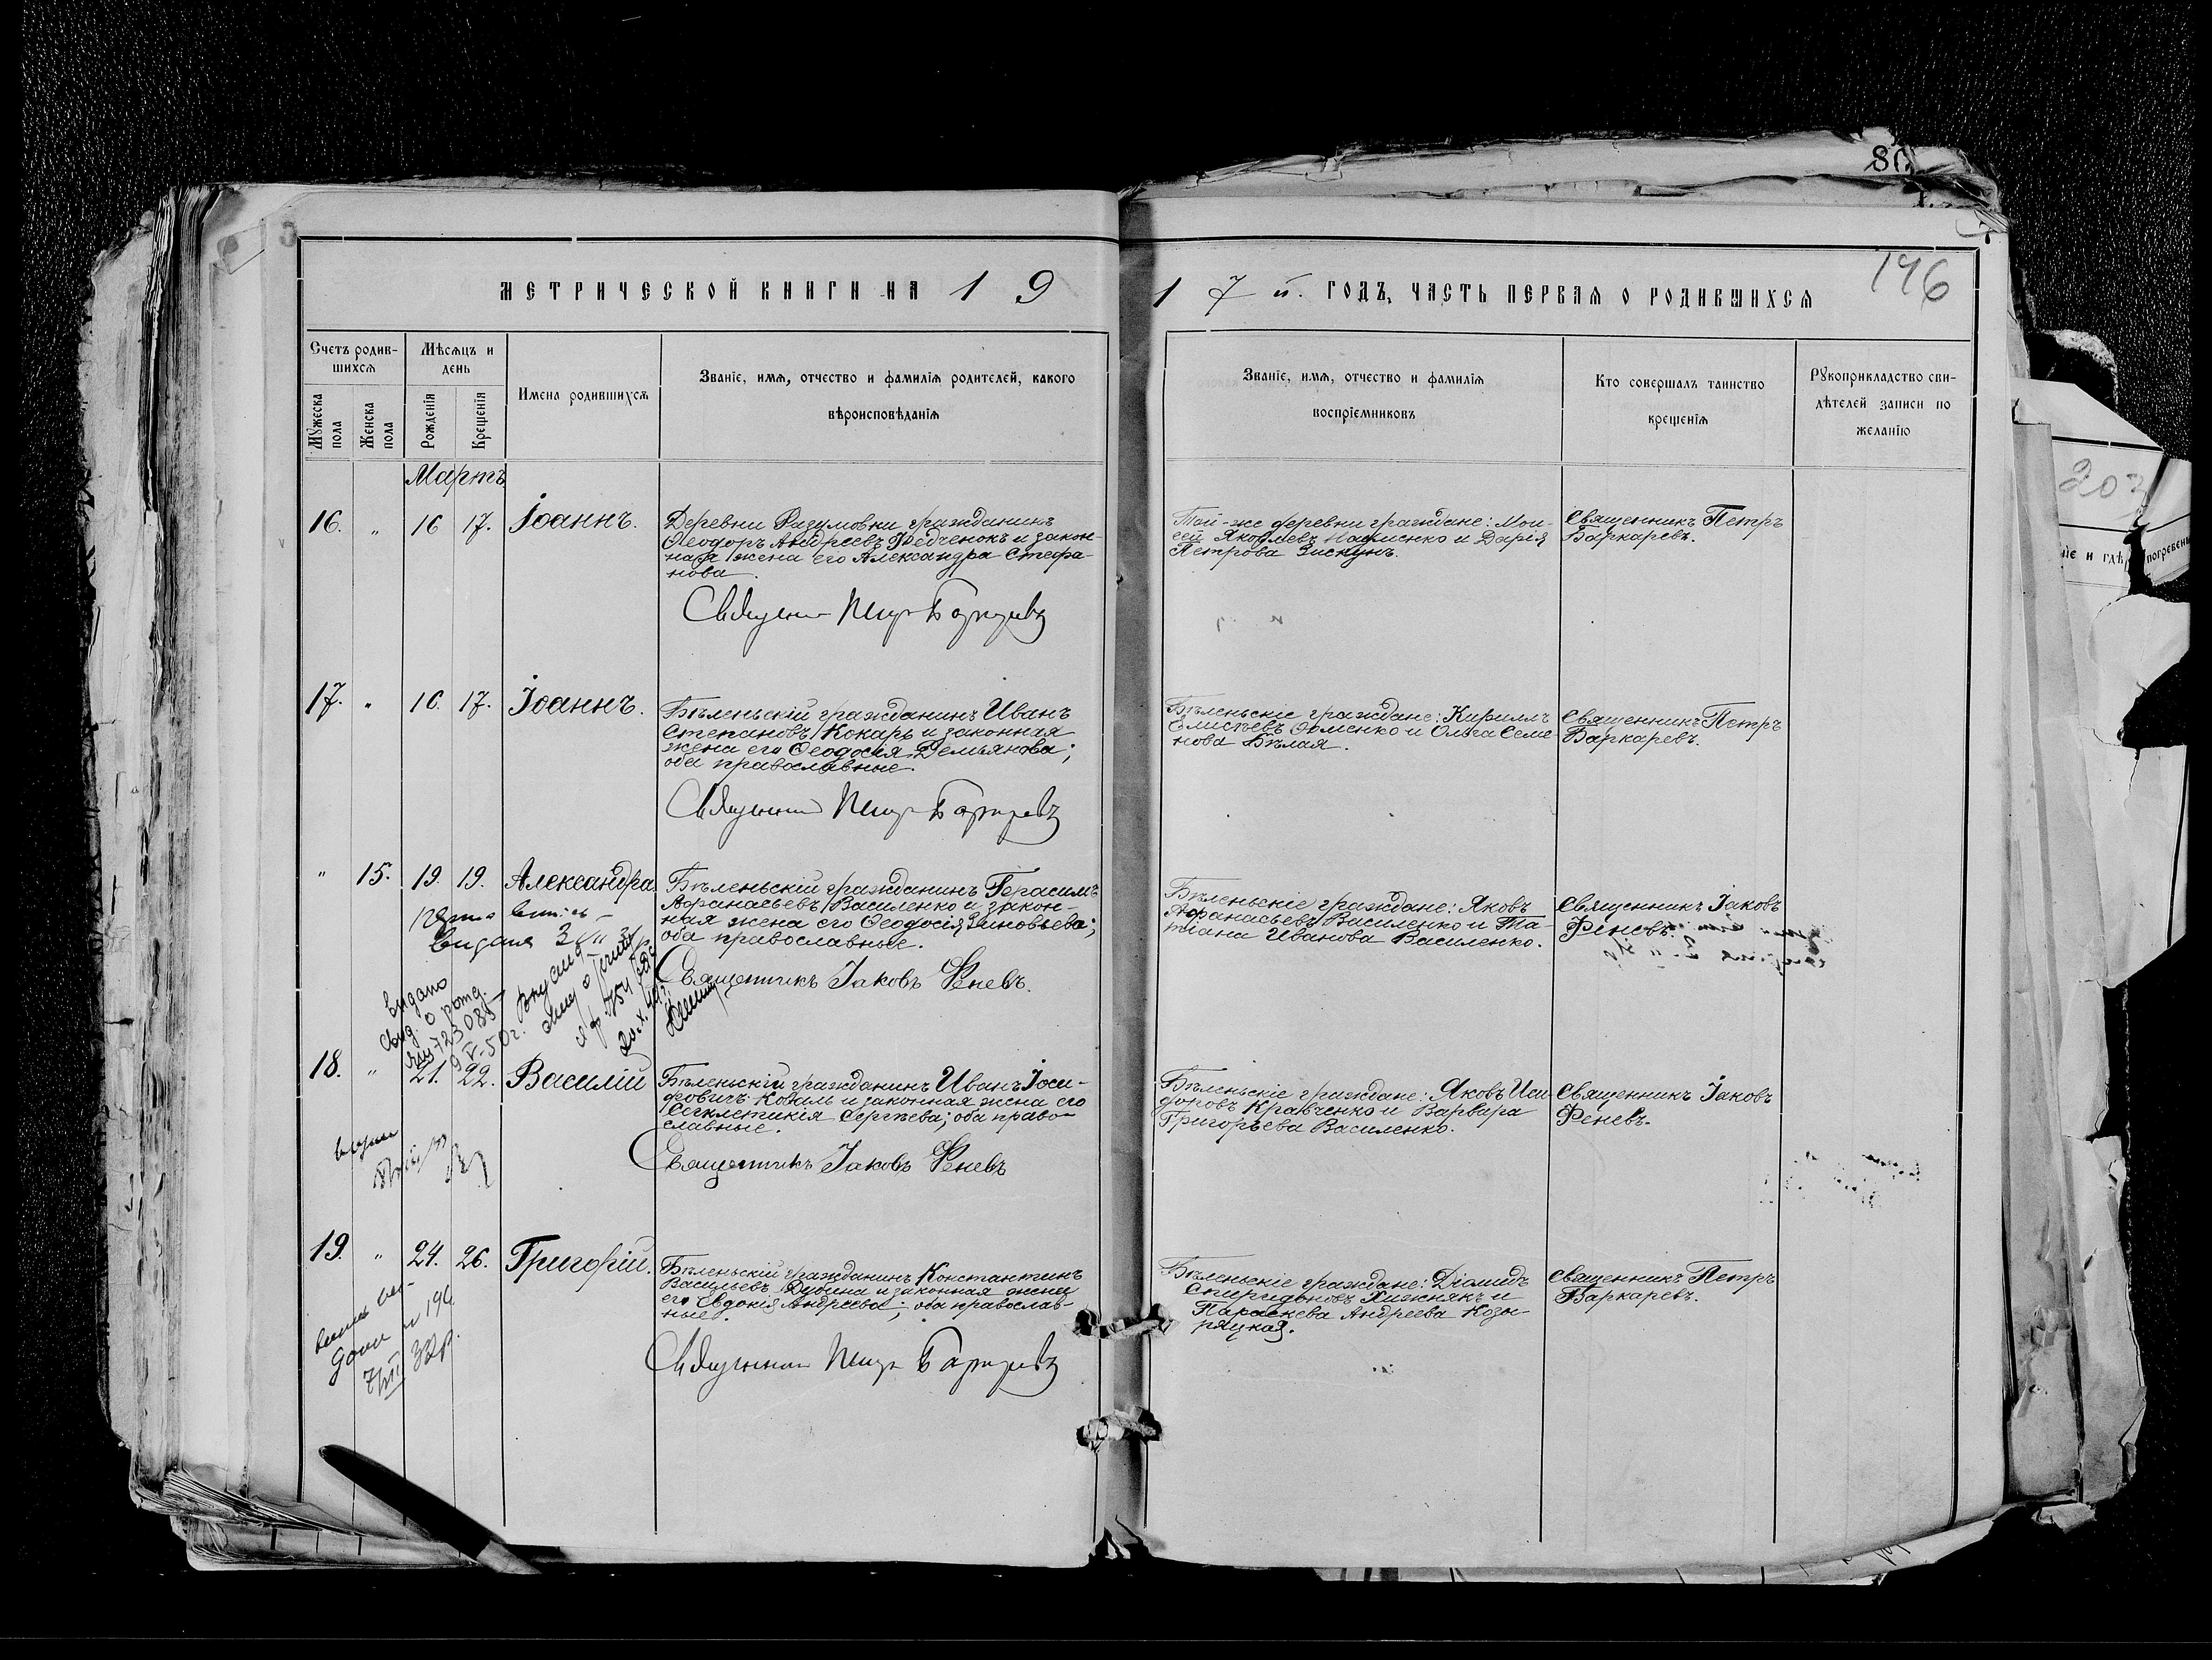 80
146
МЕТРИЧЕСКОЙ КНИГИ НА 1 9
1 7 й. ГОДЪ, ЧАСТЬ ПЕРВАЯ О РОДИВШИХСЯ
Счетъ родив-
шихся
Мѣсяцъ и
день
Имена родившихся
Званіе, имя, отчество и фамилія родителей, какого
вѣроисповѣданія
Мужеска пола
Женска пола
Рожденія
Крещенія
Званіе, имя, отчество и фамилія
воспріемниковъ
Кто совершалъ таинство
крещенія
Рукоприкладство сви-
дѣтелей записи по
желанію
Мартъ
16. " 16 17. Іоаннъ.
Деревни Разумовки гражданинъ
Ѳеодоръ Андреевъ Федченокъ и закон-
ная жена его Александра Стефа-
нова.
Петръ
Той-же деревни граждане: Мои-
сей Яковлевъ и Дарія
Петрова Зискунъ.
Священникъ Петръ
Баркаревъ.
17. " 16. 17. Іоаннъ.
Бѣленьскій гражданинъ Иванъ
Степановъ Кокарь и законная
жена его Ѳеодосія Демьянова;
оба православные.
Бѣленьскіе граждане: Кириллъ
Елисѣевъ и Ольга Семе-
нова Бѣлая.
Священникъ Петръ
Баркаревъ.
" 15. 19. 19. Александра.
Бѣленьскій гражданинъ Герасимъ
Афанасьевъ Василенко и закон-
ная жена его Ѳеодосія Зиновьева;
оба православные.
Священникъ Іаковъ Феневъ.
Бѣленьскіе граждане: Яковъ
Афанасьевъ Василенко и Та-
тіана Иванова Василенко.
Священникъ Іаковъ
Феневъ.
видана
выдано
свид. о рожд.
723085
9 V-50г.
18. " 21. 22. Василій
Бѣленьскій гражданинъ Иванъ Іоси-
фовичъ Коваль и законная жена его
Сѵнклетикія Сергѣева; оба право-
славные.
Священникъ Іаковъ Феневъ
Бѣленьскіе граждане: Яковъ Иси-
доровъ Кравченко и Варвара
Григорьева Василенко.
Священникъ Іаковъ
Феневъ.
19. " 24. 26. Григорій.
Бѣленьскій гражданинъ Константинъ
Васильевъ Дубина и законная жена
его Евдокія Андреева; оба православ-
ные.
Бѣленьскіе граждане: Діомидъ
Спиридоновъ Хижнякъ и
Параскева Андреева Козы-
ряцкая.
Священникъ Петръ
Баркаревъ.
203
погребены